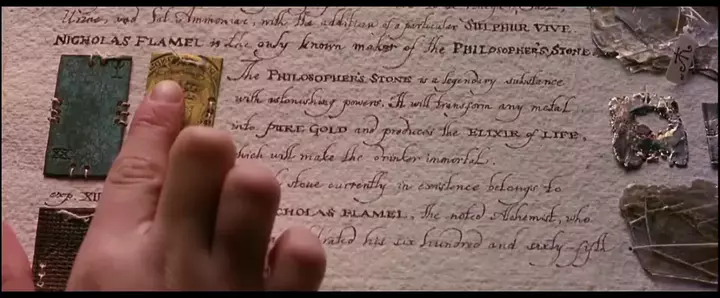 Urine, and Sal Ammoniac, with the addition of a particular SULPHUR VIVE
NICHOLAS FLAMEL is the only known maker of the PHILOSOPHER'S STONE.
The PHILOSOPHER'S STONE is a legendary substance
with astonishing powers. It will transform any metal
into PURE GOLD and produces the ELIXIR of LIFE,
which will make the drinker immortal.
stone currently in existence belongs to
exp. XII
CHOLAS FLAMEL, the noted Alchemist, who
brated his six hundred and sixty-fifth